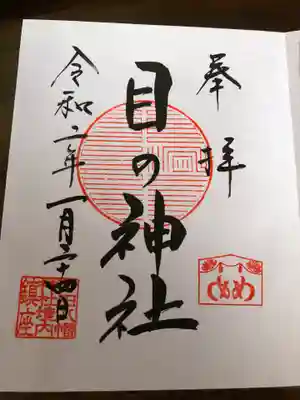 奉拝
めめ
目の神社
令和二年一月二十四日
八幡
社境内
鎮座